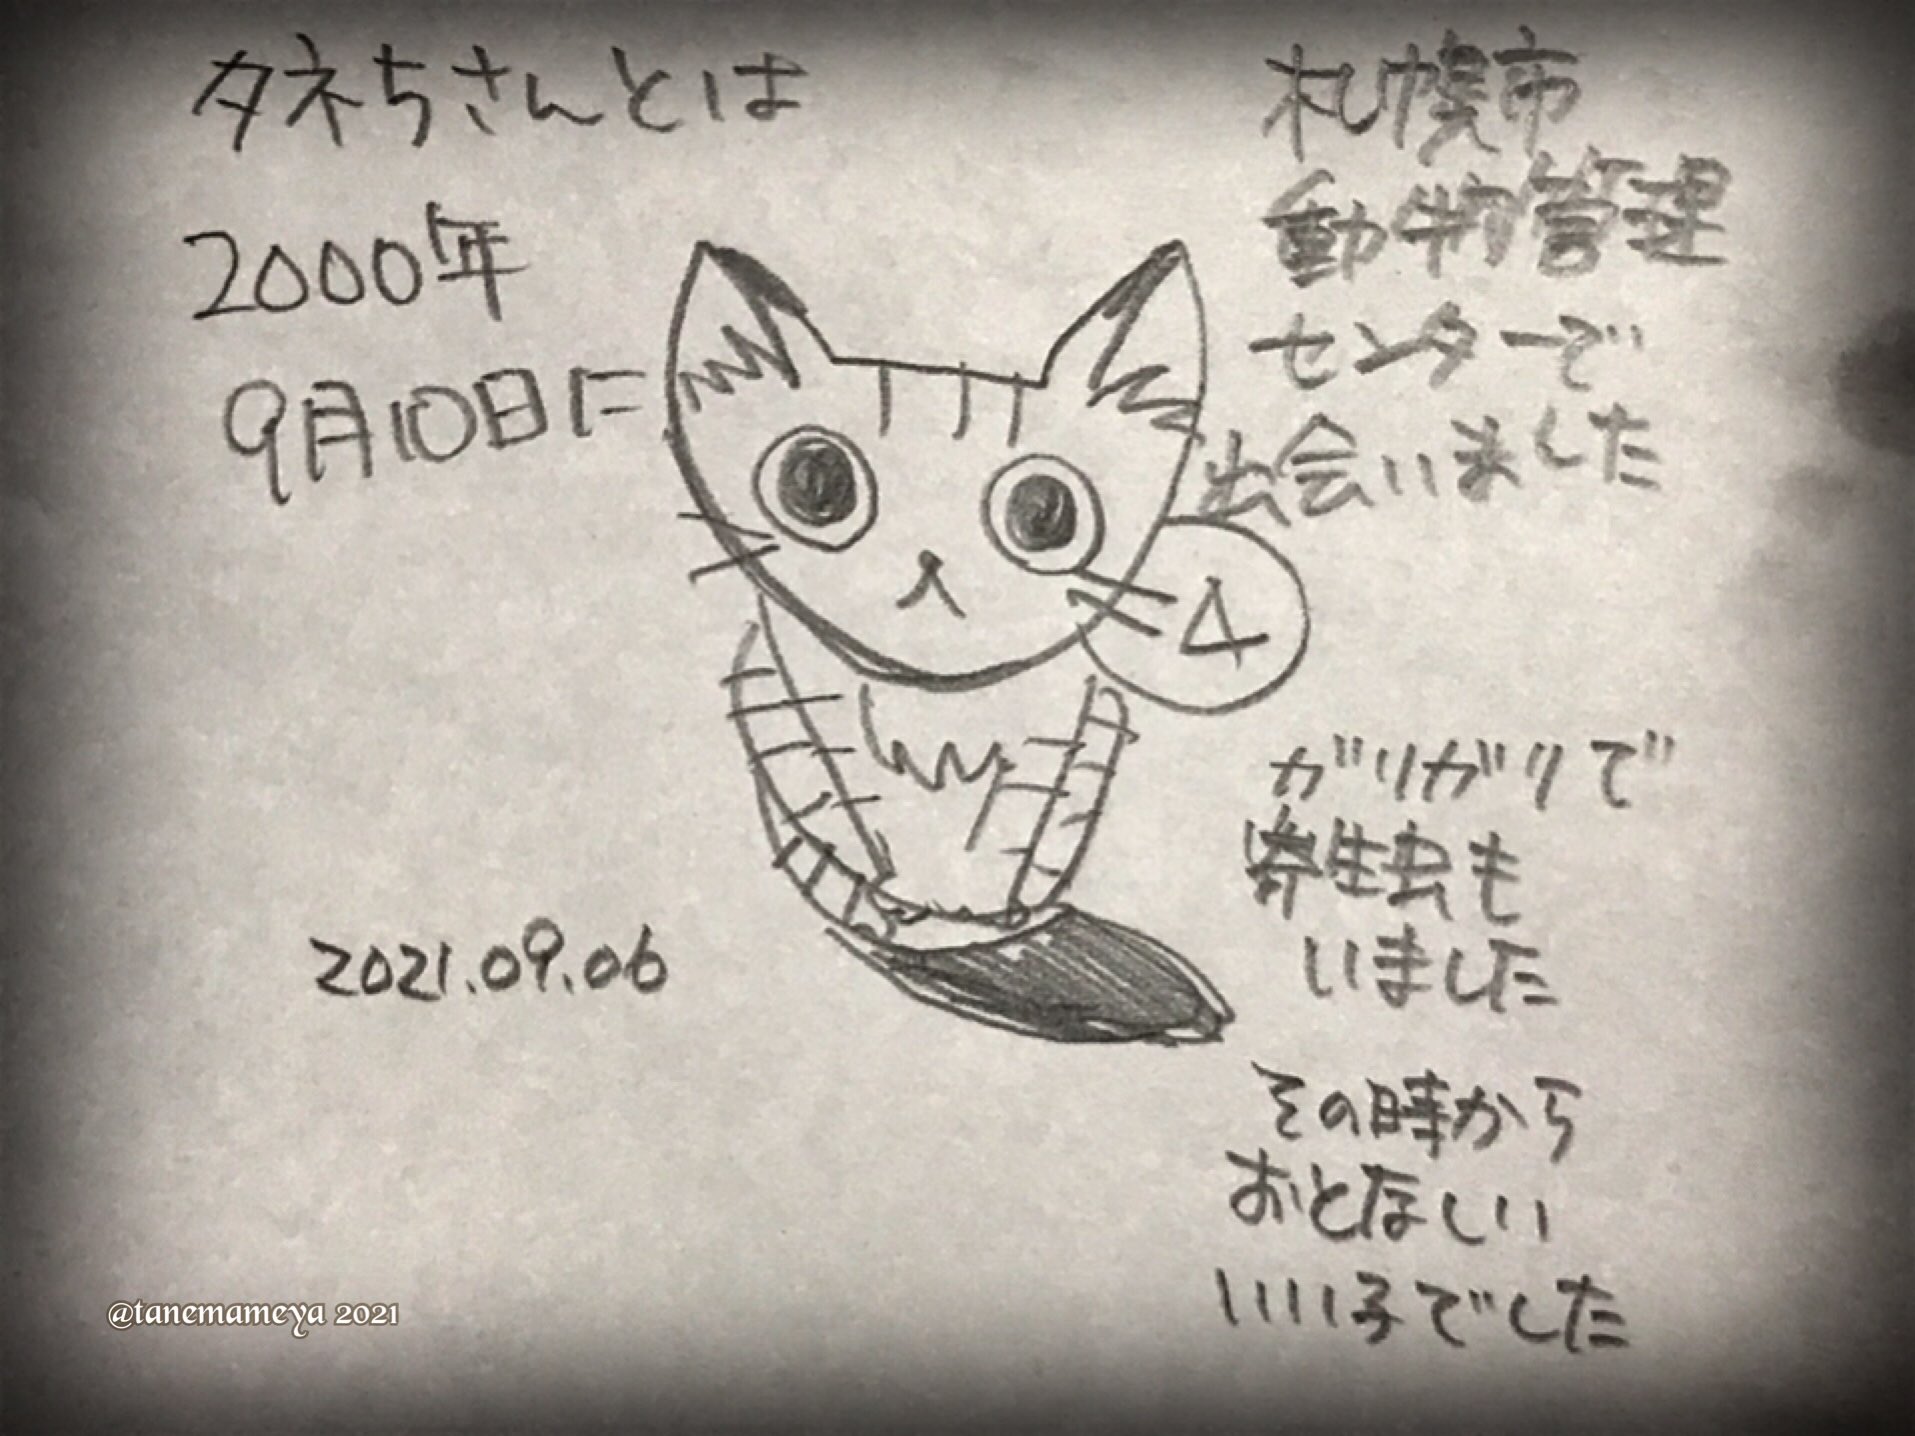 タネちさんとは
2000年
9月10日に
札幌市
動物管理
センターで
出会いました
④
ガリガリで
寄生虫も
いました
その時から
おとなしい
いい子でした
2021.09.06
@tanemameya 2021